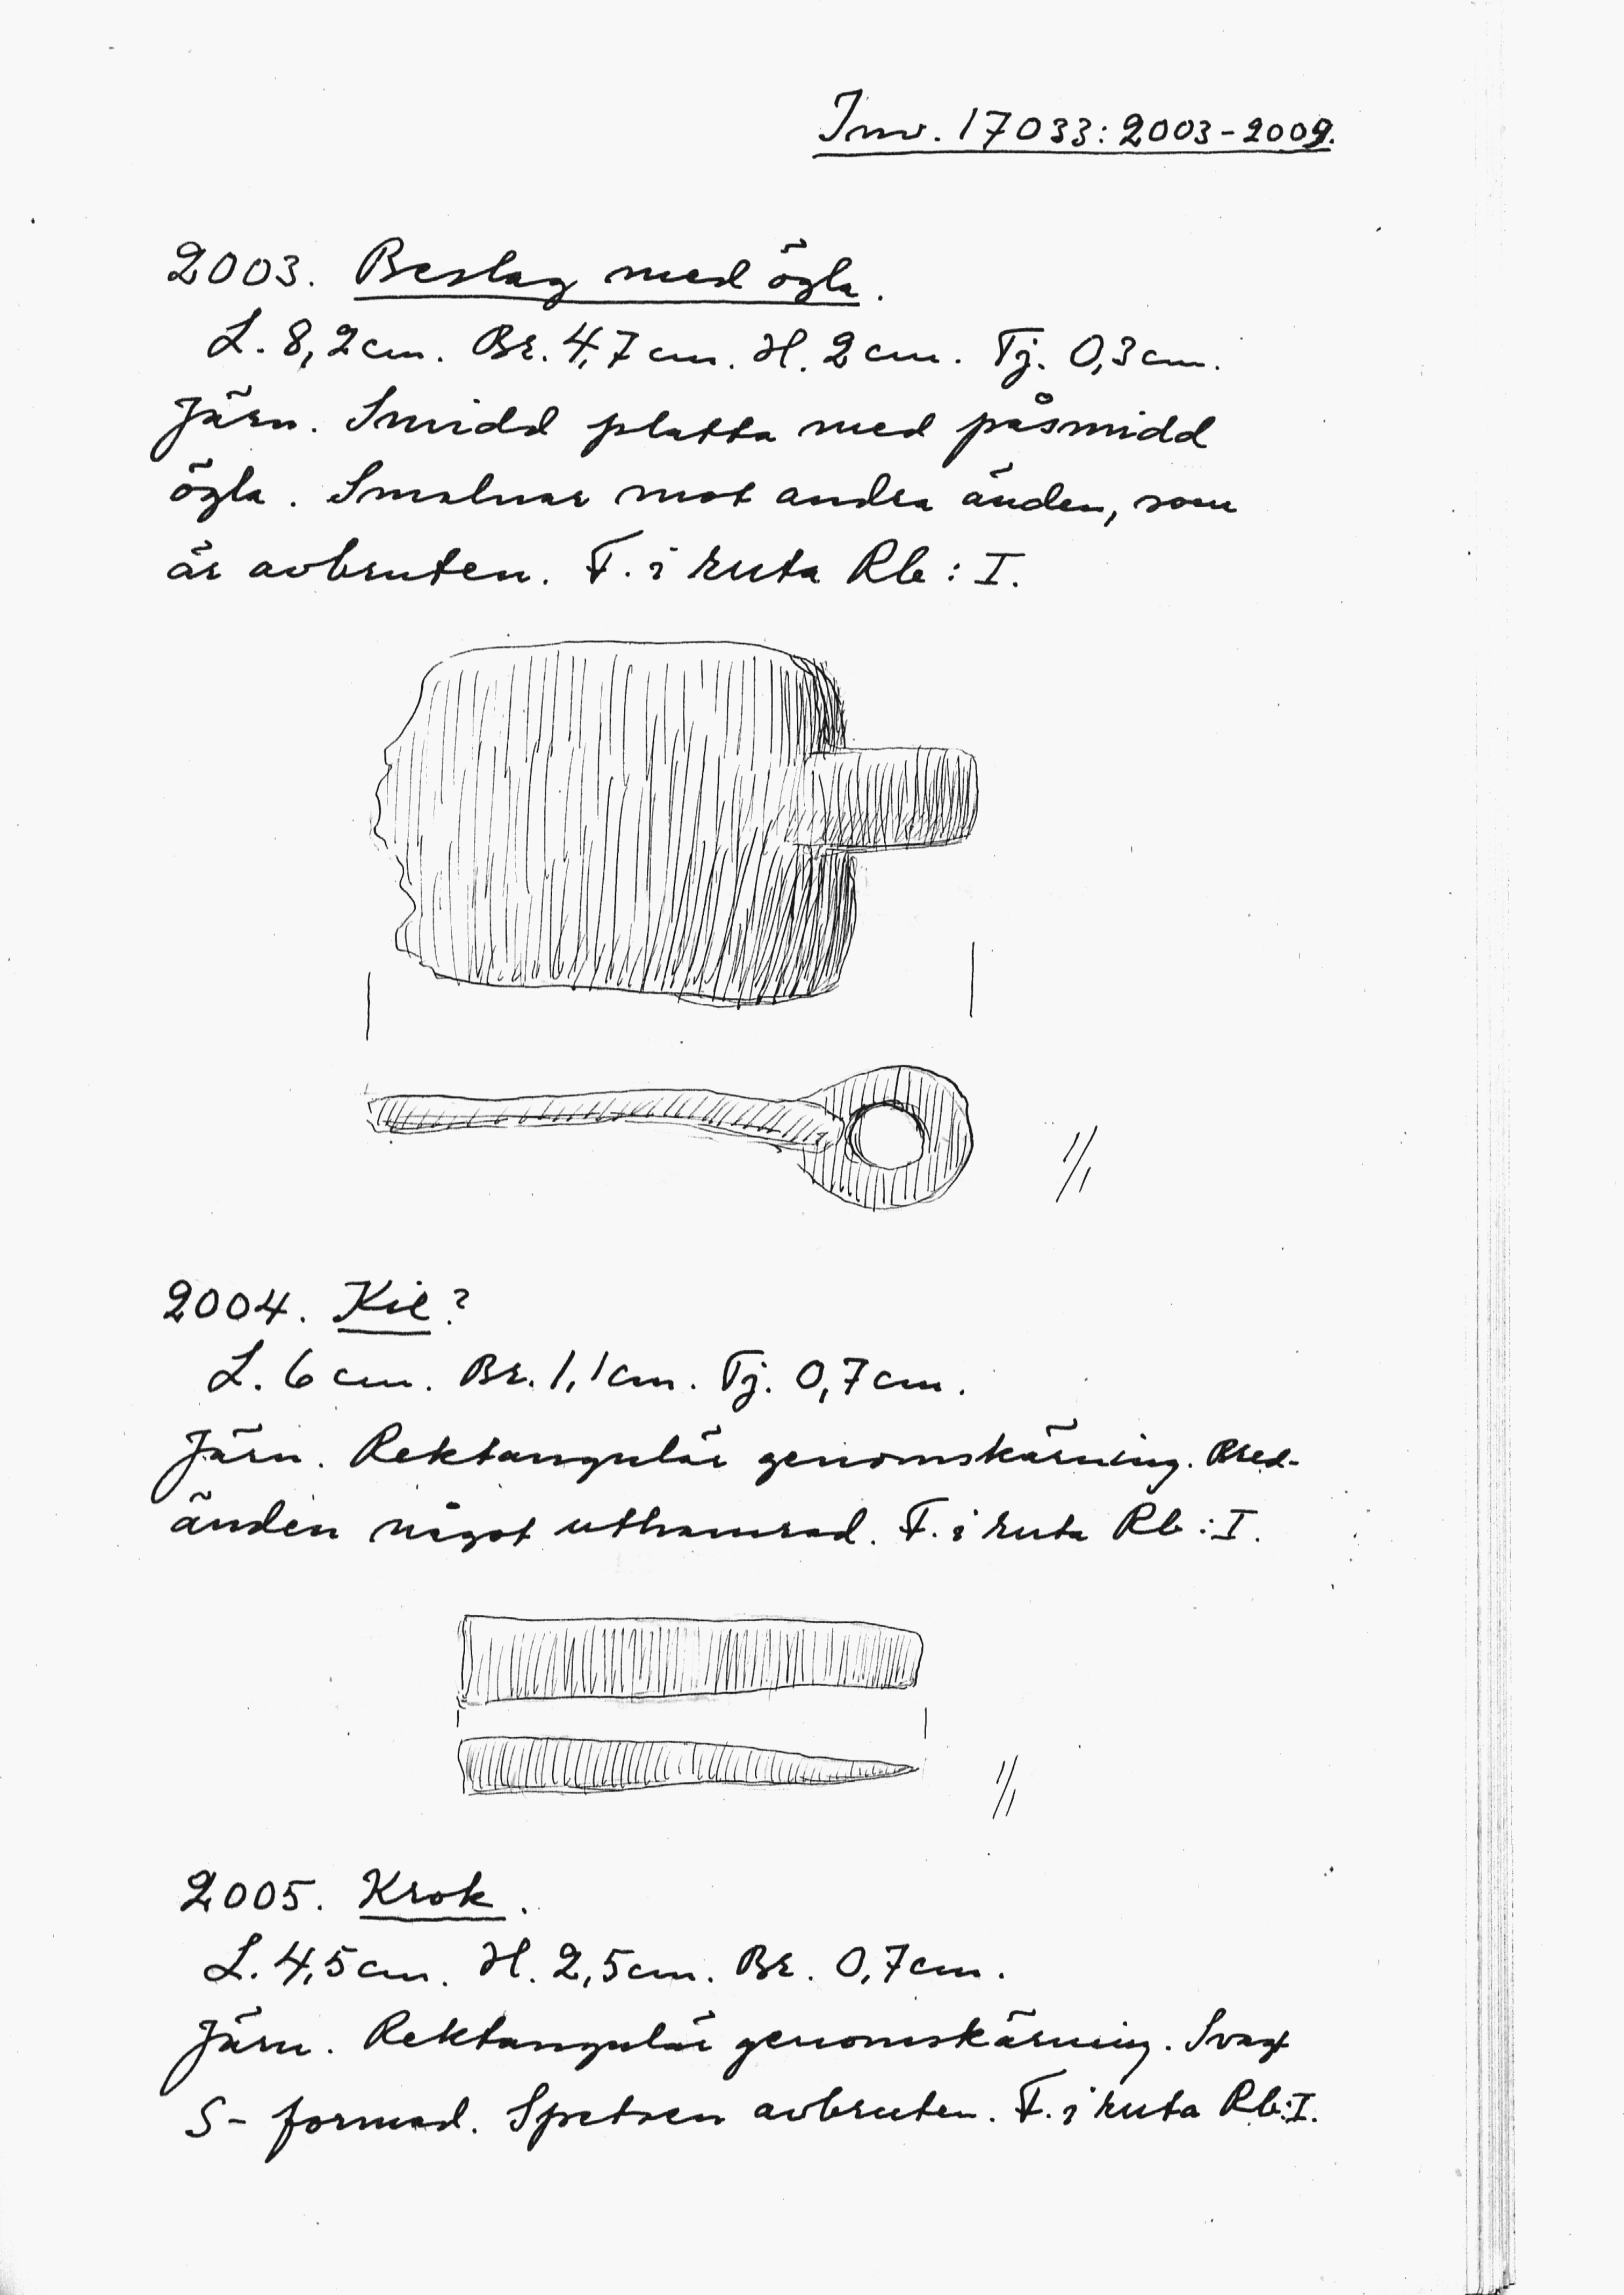 Inv. 17033:2003-2009.
2003. Beslag med ögla.
L. 8,2 cm. Br. 4,7 cm. H. 2 cm. Tj. 0,3 cm.
Järn. Smidd platta med påsmidd
ögla. Smalnar mot andra änden, som
är avbruten. F. i ruta Rb: I.
1/1
2004. Kil?
L. 6 cm. Br. 1,1 cm. Tj. 0,7 cm.
Järn. Rektangulär genomskärning. Bred-
änden något uthamrad. F. i ruta Rb: I.
1/1
2005. Krok.
L. 4,5 cm. H. 2,5 cm. Br. 0,7 cm.
Järn. Rektangulär genomskärning. Svagt
S-formad. Spetsen avbruten. F. i ruta Rb: I.